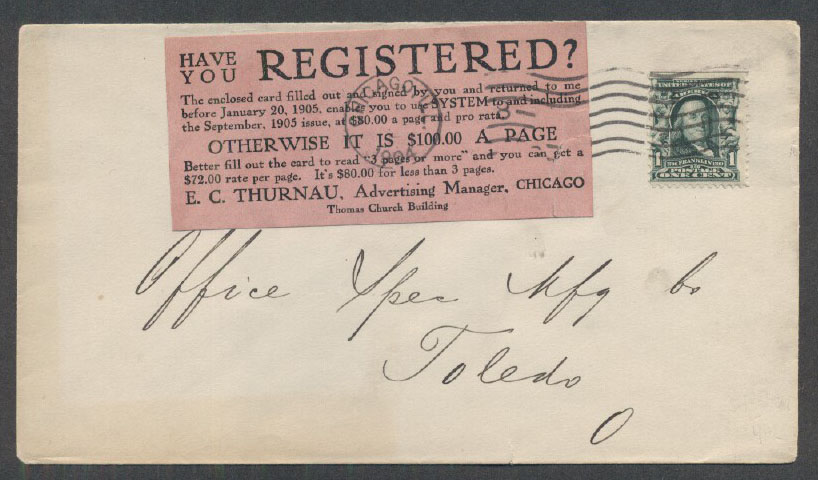 HAVE YOU REGISTERED?
The enclosed card filled out and signed by you and returned to me
before January 20, 1905, enables you to use SYSTEM to and including
the September, 1905 issue, at $80.00 a page and pro rata.
OTHERWISE IT IS $100.00 A PAGE
Better fill out the card to read "3 pages or more" and you can get a
$72.00 rate per page. It's $80.00 for less than 3 pages.
E. C. THURNAU, Advertising Manager, CHICAGO
Thomas Church Building
CHICAGO
1904
UNITED STATES OF
1 1
FRANKLIN
POSTAGE
ONE CENT
Office Spec Mfg Co
Toledo
O